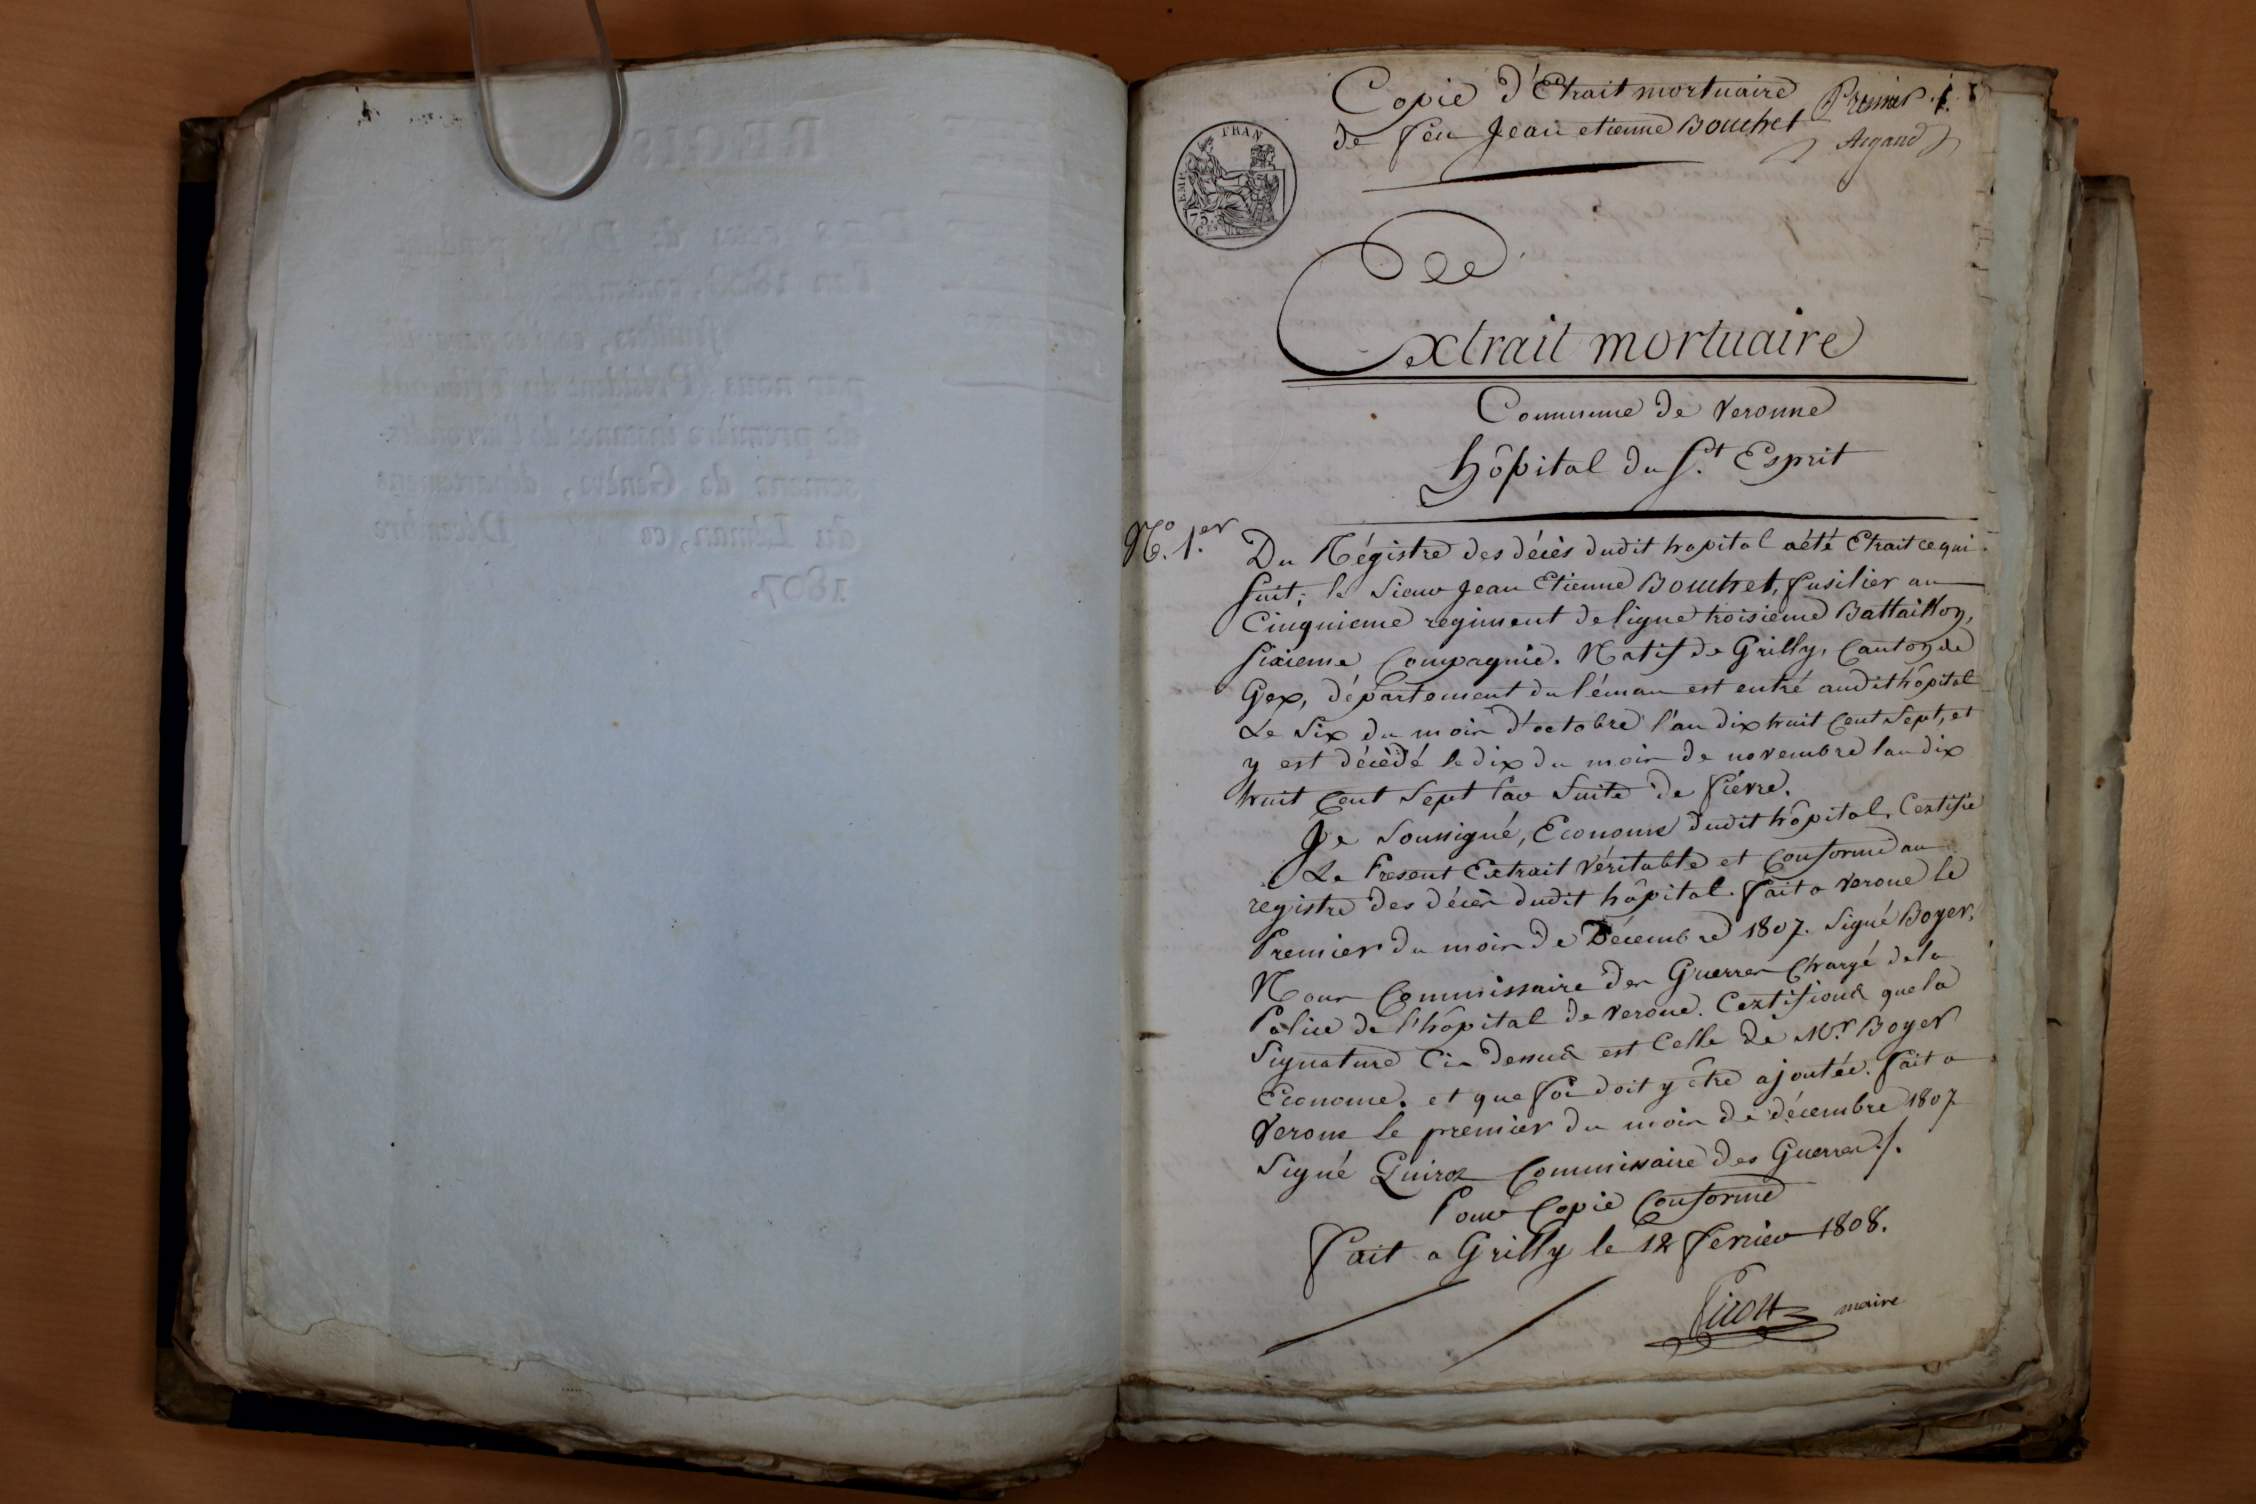 Copie d'Etrait mortuaire
de feu Jean etienne Bouchet
Premier . 1.
Argand
EMP. FRAN
75.
C.ES
Extrait mortuaire
Commune de Veronne
hôpital du St. Esprit
No. 1.er
Du Régistre des décès dudit hopital a été Etrait ce qui
suit; le Sieur Jean Etienne Bouchet, fusilier au
Cinquieme régiment de ligne troisieme Battaillon,
sixieme Compagnie. Natif de Grilly, Canton de
Gex, département du léman est entré audit hôpital
Le Six du mois d'octobre l'an dix huit Cent Sept, et
y est décédé le dix du mois de novembre l'an dix
huit Cent Sept par Suite de fiévre.
Je Soussigné, Econome dudit hôpital, Certifie
Le Present Extrait Véritable et Conforme au
registre des décès dudit hôpital. fait a Verone le
Premier du mois de Décembre 1807. Signé Boyer,
Nous Commissaire des Guerres Chargé de la
Police de l'hôpital de Verone. Certifions que la
Signature Ci-dessus est Celle de Mr. Boyer
Econome. et que foi doit y être ajoutée. fait a
Verone le premier du mois de décembre 1807
Signé Quiroz Commissaire des Guerres ./.
Pour Copie Conforme
Fait a Grilly le 12 fevrier 1808.
maire
REGIS
l'an 1808, contenant
feuillets, cotés et paraphés
par nous Président du Tribunal
de première instance de l'arrondis-
sement de Genève, département
du Léman, ce Décembre
1807.